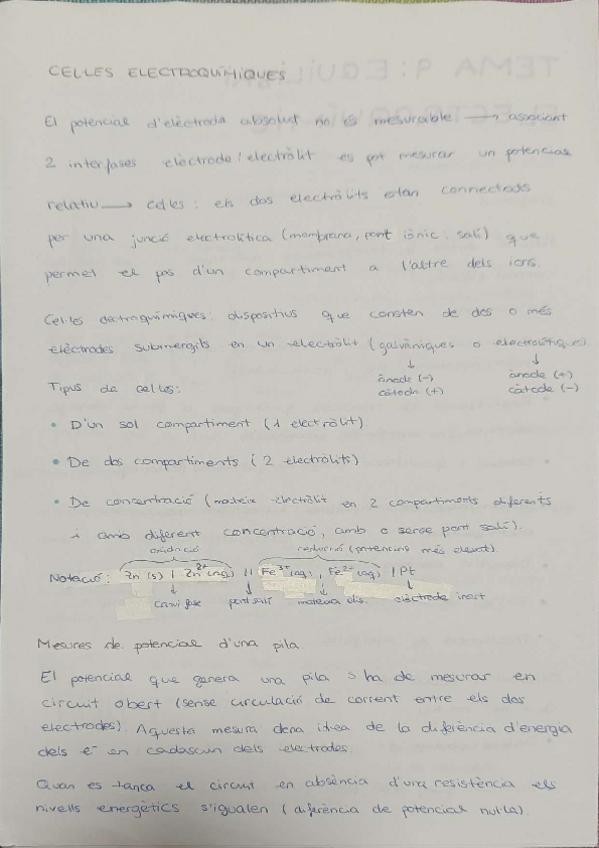 CEL·LES ELECTROQUÍMIQUES
El potencial d'elèctrode absolut no és mesurable ⟶ associant
2 interfases elèctrode/electròlit es pot mesurar un potencial
relatiu ⟶ cel·les: els dos electròlits estan connectats
per una junció electrolítica (membrana, pont iònic, salí) que
permet el pas d'un compartiment a l'altre dels ions.
Cel·les electroquímiques: dispositius que consten de dos o més
elèctrodes submergits en un electròlit (galvàniques o electrolítiques)
↓ ↓
ànode (-) ànode (+)
càtode (+) càtode (-)
Tipus de cel·les:
• D'un sol compartiment (1 electròlit)
• De dos compartiments (2 electròlits)
• De concentració (mateix electròlit en 2 compartiments diferents
i amb diferent concentració, amb o sense pont salí).
oxidació reducció (potencial més elevat)
Notació: Zn (s) | Zn²⁺(aq) || Fe³⁺(aq), Fe²⁺(aq) | Pt
canvi fase pont salí mateixa dis. elèctrode inert
Mesures de potencial d'una pila.
El potencial que genera una pila s'ha de mesurar en
circuit obert (sense circulació de corrent entre els dos
elèctrodes). Aquesta mesura dona idea de la diferència d'energia
dels e⁻ en cadascun dels elèctrodes.
Quan es tanca el circuit en absència d'una resistència els
nivells energètics s'igualen (diferència de potencial nul·la).